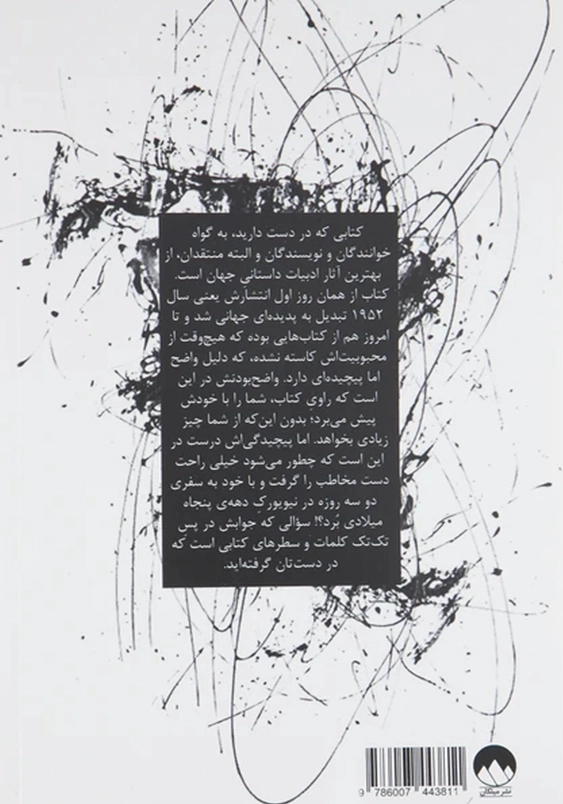 کتابی که در دست دارید، به گواه
خوانندگان و نویسندگان و البته منتقدان، از
بهترین آثار ادبیات داستانی جهان است.
کتاب از همان روز اول انتشارش یعنی سال
۱۹۵۲ تبدیل به پدیده‌ای جهانی شد و تا
امروز هم از کتاب‌هایی بوده که هیچ‌وقت از
محبوبیت‌اش کاسته نشده، که دلیل واضح
اما پیچیده‌ای دارد. واضح‌بودنش در این
است که راویِ کتاب، شما را با خودش
پیش می‌برد؛ بدون این‌که از شما چیز
زیادی بخواهد. اما پیچیدگی‌اش درست در
این است که چطور می‌شود خیلی راحت
دست مخاطب را گرفت و با خود به سفری
دو سه روزه در نیویورکِ دهه‌ی پنجاه
میلادی بُرد؟! سؤالی که جوابش در پسِ
تک‌تک کلمات و سطرهای کتابی است که
در دست‌تان گرفته‌اید.
9 786007 443811
نشر میلکان